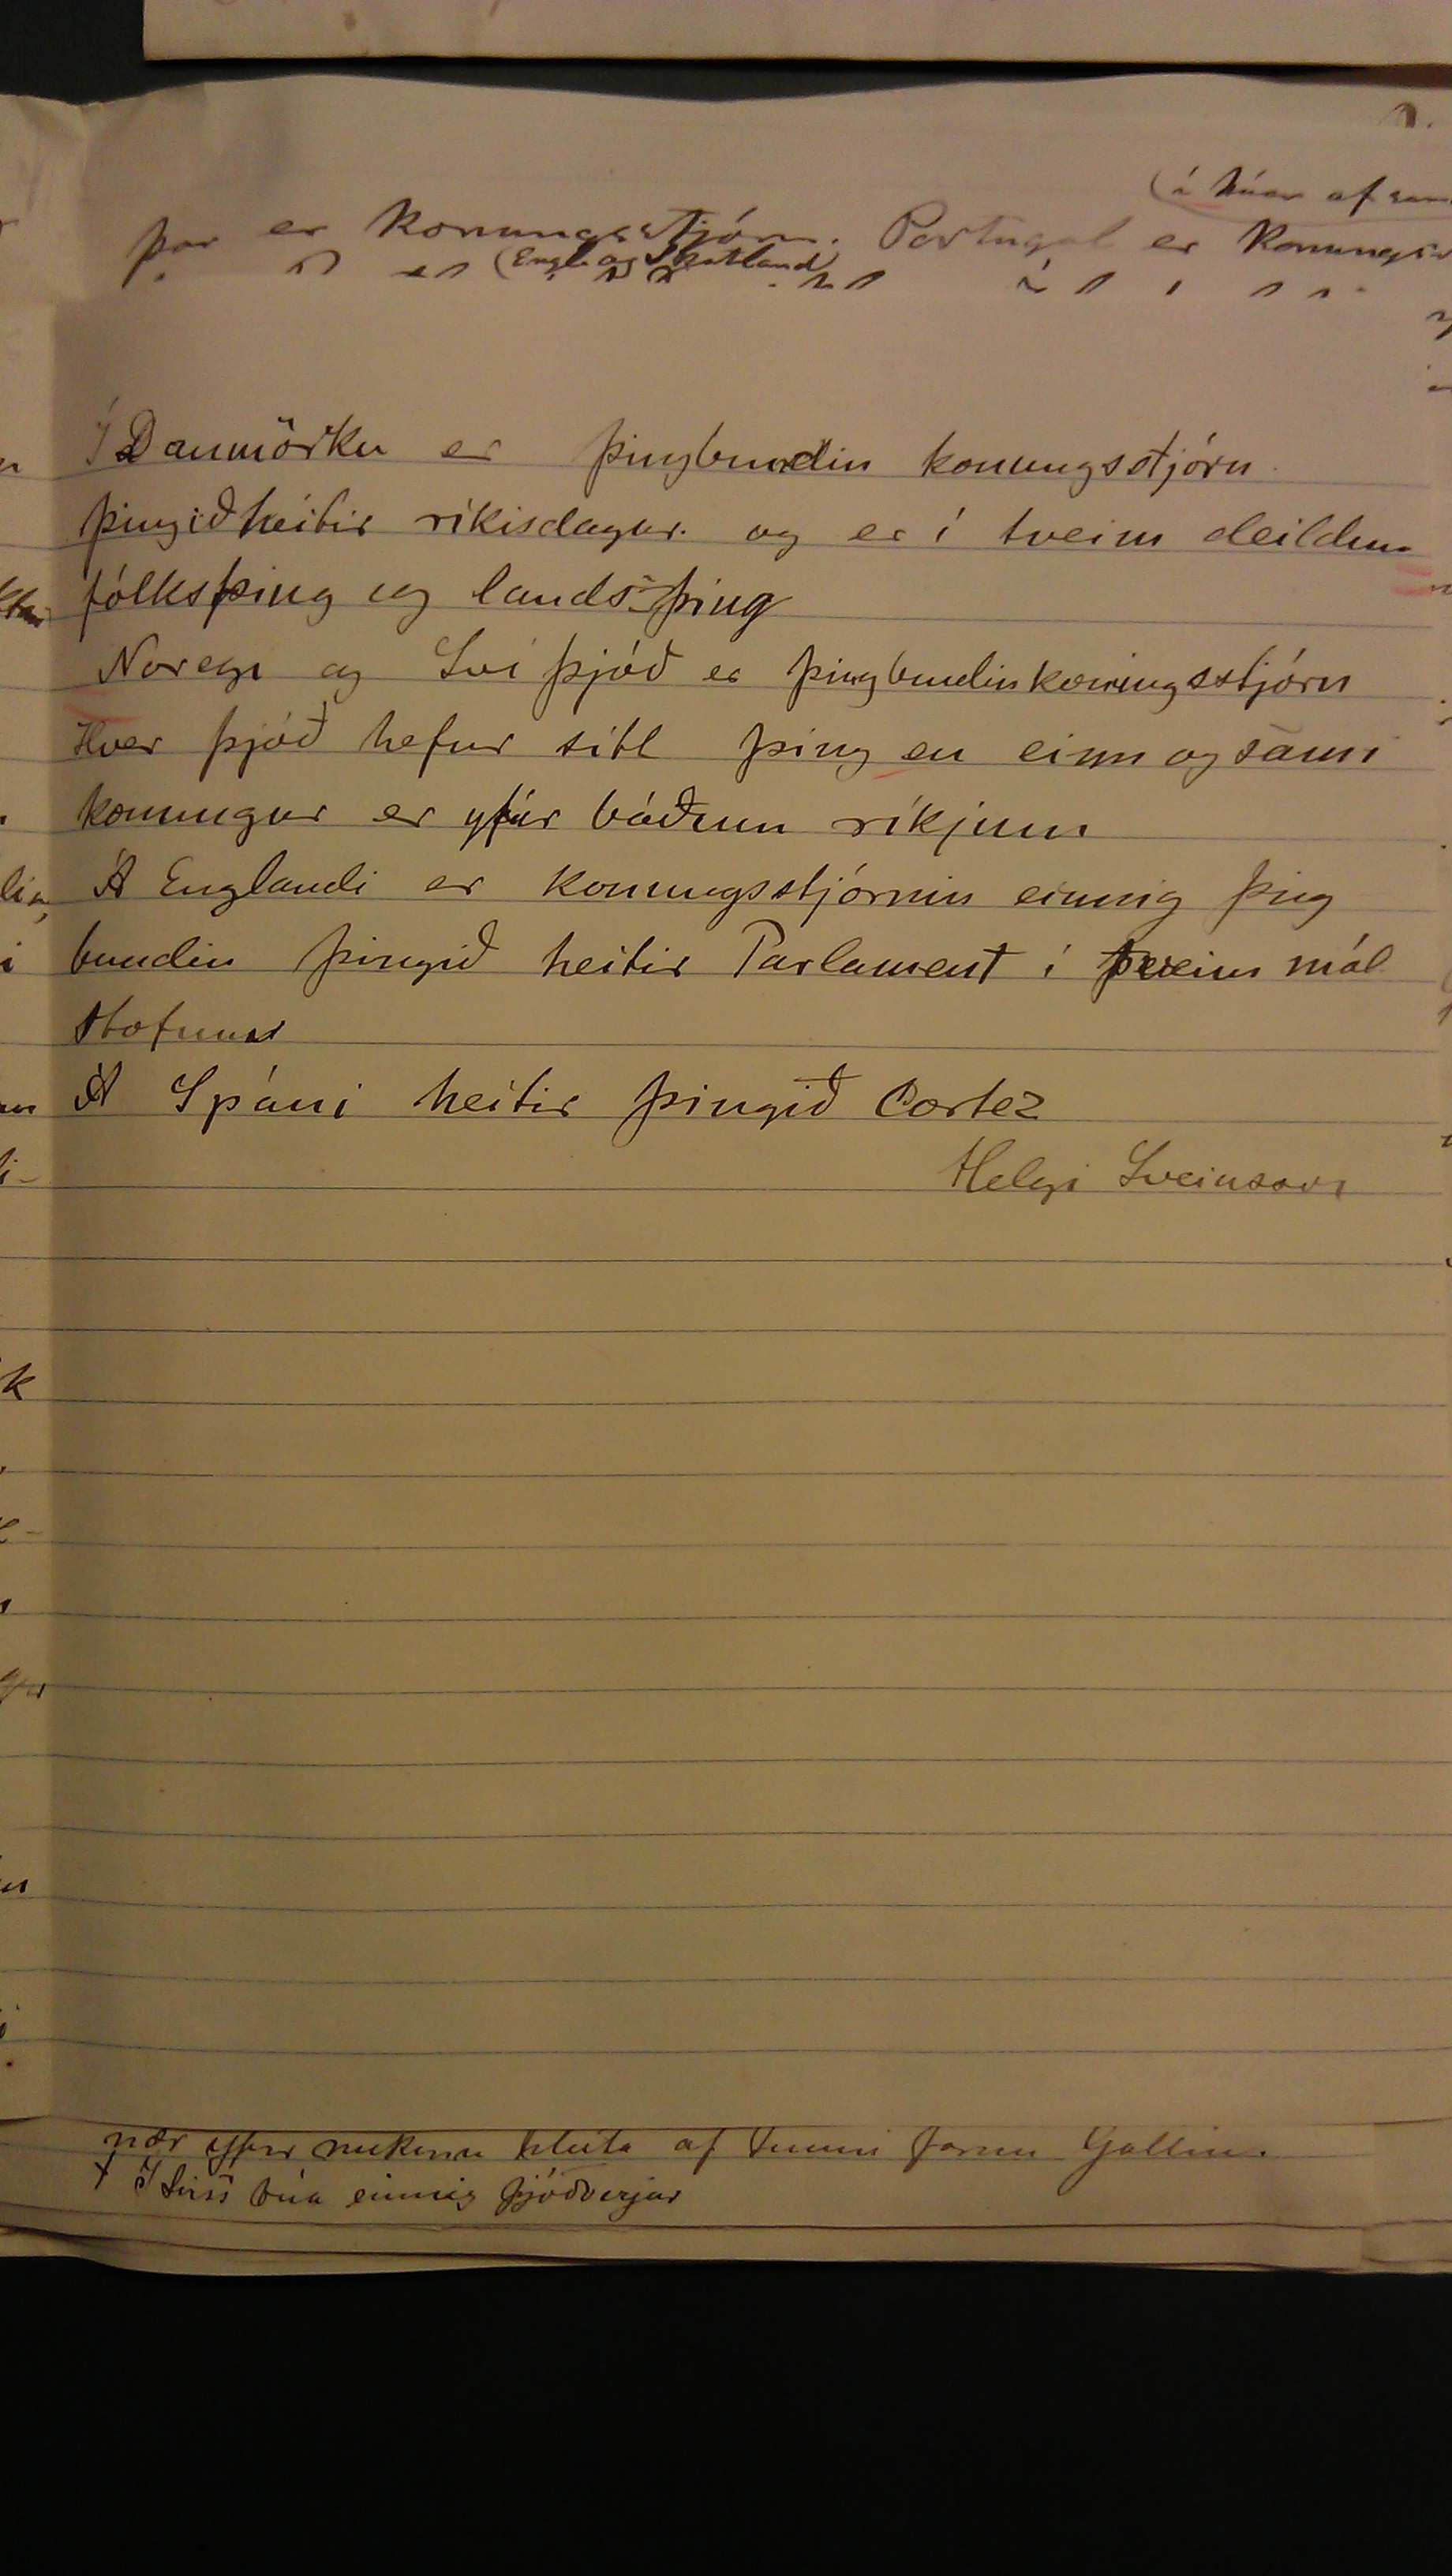 (á
þar er Konungsstjórn. Portugal er Konungs
(Engl. og Skotland)
Í Danmörku er þingbundin konungsstjórn
þingið heitir ríkisdagur. og er í tveim deildum
fólksþing og lands-þing
Noregi og Svíþjóð er þingbundin konungsstjórn
Hver þjóð hefur sitt þing en einn og sami
konungur er yfir báðum ríkjum
Á Englandi er konungsstjórnin einnig þing
bundin þingið heitir Parlament í tveim mál
stofum
Á Spáni heitir þingið Cortez
Helgi Sveinsson
nær yfir hluta af fornu Gallíu.
Í Sviss búa einnig þjóðverjar